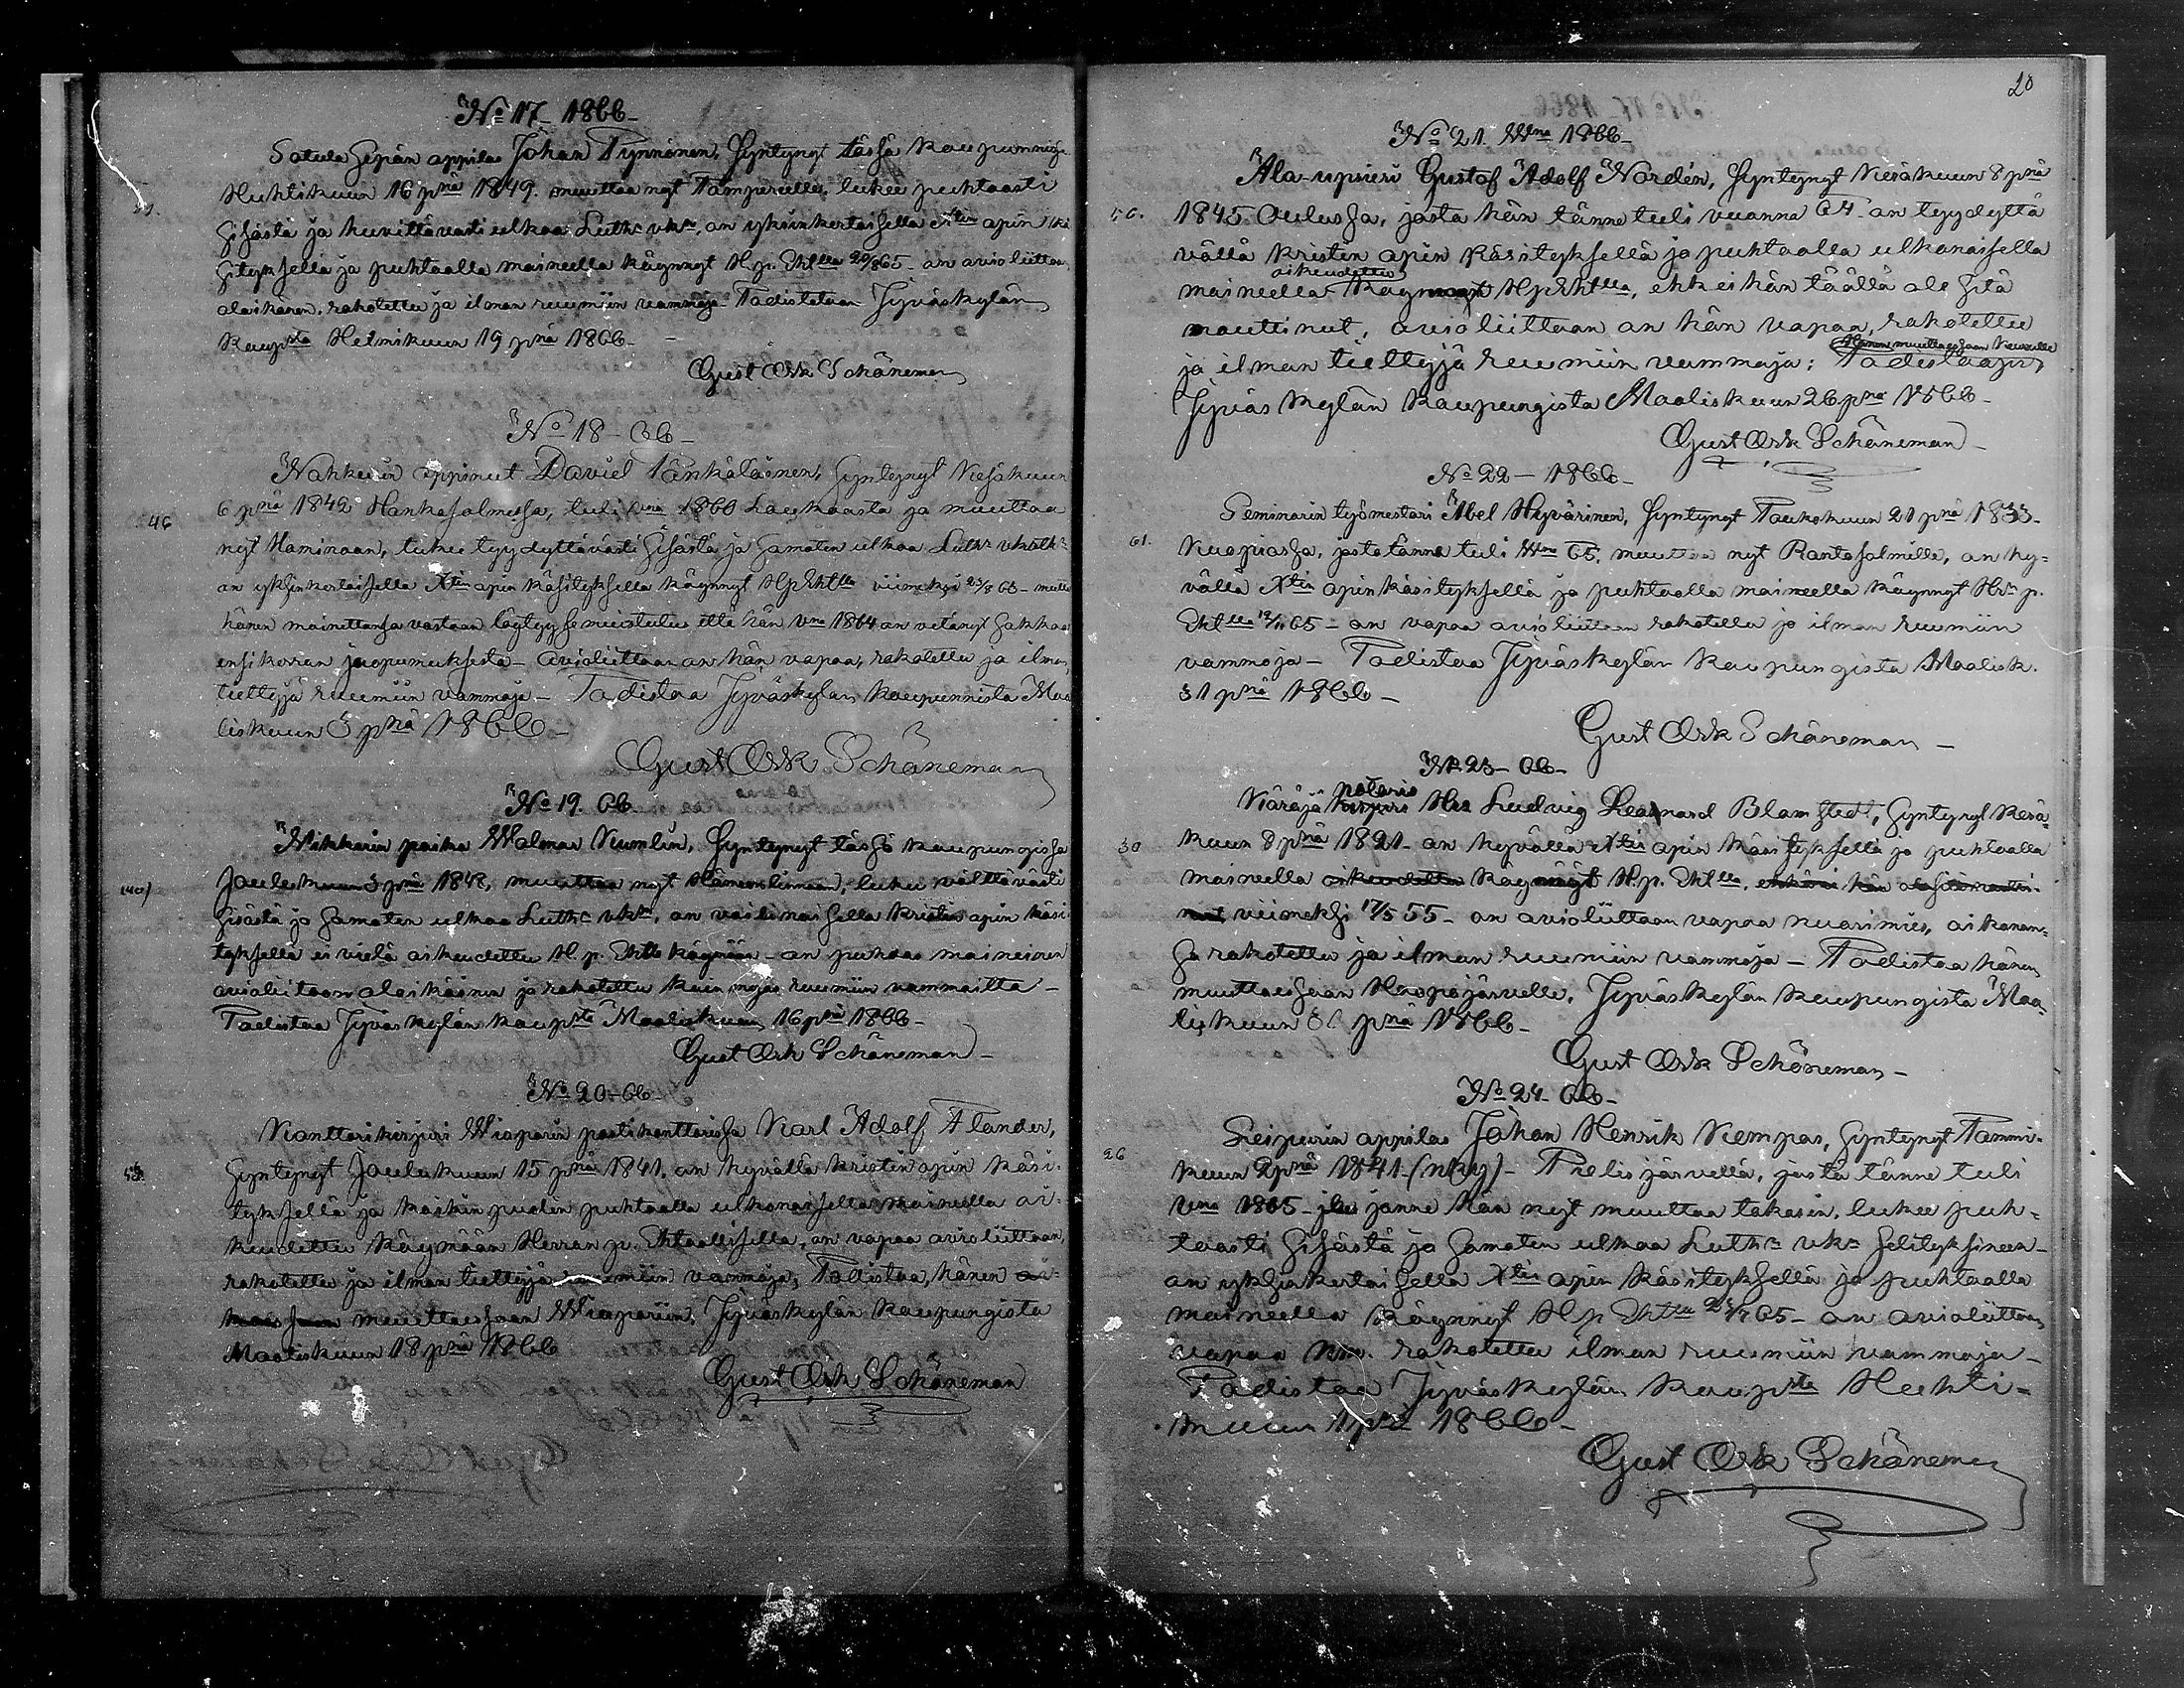 No 17 1866-
Satula Sepän oppilas Johan Pynnönen, Syntynyt tässä Kaupunnissa
Huhtikuun 16 pnä 1849. muuttaa nyt Tampereelle, lukee puhtaasti
Sisästä ja kuvittävästi ulkoa Luth: vkn, on yksinkertaisella Xtin opin kä
sityksellä ja puhtaalla maineella käynnyt H. p. Ehtlla 20/8 65 - on avioliittoon
alaikänen, rokotettu ja ilman ruumiin vammoja. Todistetaan Jyväskylän
Kaupsta Helmikuun 19 pnä 1866.-
Gust Osk Schöneman
No 18-66-
46
Nahkurin oppinut Daviel Pänkäläinen, Syntynyt Kesäkuun
6 pnä 1842 Hankasalmessa, tuli vna 1860 Laukaasta ja muuttaa
nyt Haminaan, lukee tyydyttävästi Sisästä ja Samaten ulkoa Luth:
on yksinkertaisella Xtin opin käsityksellä käynnyt H p Ehtlla viimeksi
hänen mainettansa vastaan löytyy se muistutus että hän vna 1864 on vetänyt Sakkoa
ensikerran juopumuksesta- avioliittoon on hän vapaa, rokotettu ja ilman
tiettyjä ruumiin vammoja - Todistaa Jyväskylän kaupunnista Maa
liskuun 3 pnä 1866-
Gust Osk Schöneman
No 19. 66
Nikkarin poika Walmar Numlin, Syntynyt tässä kaupungissa
Joulukuun 3 pnä 1848, muuttaa nyt Hämeenlinnaan, lukee välttävästi
Sisästä ja Samaten ulkoa Luth: vkn, on vaillinaisella kristin opin käsi
tyksellä ei vielä oikeudettu H. p. Ehtlle käymään - on puhdas maineinen
avioliitoon alaikäinen ja rokotettu kuin myös ruumiin vammaitta -
Todistaa Jyväskylän kaupsta Maaliskuun 16 pnä 1866-
Gust Osk Schöneman-
No 20-66-
Konttorikirjuri Wiaporin postikonttorissa Karl Adolf Alander,
Syntynyt Joulukuun 15 pnä 1841. on hyvällä kristin opin käsi-
tyksellä ja kaikin puolin puhtaalla ulkonaisella maineella oi-
keudettu käymään Herran p. Ehtoollisella, on vapaa avioliittoon,
rokotettu ja ilman tiettyjä ruumiin vammoja, Todistaa, hänen
muuttaessaan Wiaporiin, Jyväskylän kaupungista
Maaliskuun 18 pnä 1866
Gust Osk Schöneman
20
No 21 Wna 1866-
Ala-upsieri Gustaf Adolf Nordén, Syntynyt Kesäkuun 8 pnä
1845 Oulussa, josta hän tänne tuli vuonna 64 on tyydyttä
vällä kristin opin käsityksellä ja puhtaalla ulkonaisella
oikeudettu
maineella H p Ehtlla, ehk ei hän täällä ole Sitä
nauttinut, avioliittoon on hän vapaa, rokotettu
Hänen muuttaessaan
ja ilman tiettyjä ruumiin vammoja: Todistaa
Jyväskylän Kaupungista Maaliskuun 26 pnä 1866-
Gust Osk Schöneman-
No 22-1866-
61.
Seminarin työmestari Abel Hyvärinen, Syntynyt Toukokuun 21 pnä 1833-
Kuopiossa, josta tänne tuli Wna 65, muuttaa nyt Rantasalmille, on hy-
vällä Xtin opin käsityksellä ja puhtaalla maineella käynnyt Hrn p.
Ehtlla 65 - on vapaa avioliittoon rokotettu ja ilman ruumiin
vammoja- Todistaa Jyväskylän Kaupungista Maalisk.
31 pnä 1866-
Gust Osk Schöneman-
No 23-66-
30
notario
Käräjä Hra Ludvig Leonard Blomstedt, Syntynyt Kesä-
kuun 8 pnä 1821 - on hyvällä Xtin opin käsityksellä ja puhtaalla
maineella oikeudettu käynnyt H. p. Ehtlla,
viimeksi 17/5 55 - on avioliittoon vapaa nuorimies, aikanan-
Sa rokotettu ja ilman ruumiin vammoja - Todistaa hänen
muuttaessaan Haapajärvelle, Jyväskylän Kaupungista Maa-
liskuun 31 pnä 1866-
Gust Osk Schöneman-
No 24-66-
26
Leipurin oppilas Johan Henrik Kempas, Syntynyt Tammi-
kuun 2 pnä 1841 - Pielisjärvellä, josta tänne tuli
vna 1865 - jonne hän nyt muuttaa takasin. lukee puh-
taasti Sisästä ja Samaten ulkoa Luth:n vk:n Selityksineen-
on yksinkertaisella Xtin opin käsityksellä ja puhtaalla
maineella käynnyt H p Ehtlla 65 - on avioliittoon
vapaa rokotettu ilman ruumiin vammoja-
Todistaa Jyväskylän Kaupsta Huhti-
kuun 1 pnä 1866-
Gust Osk Schöneman